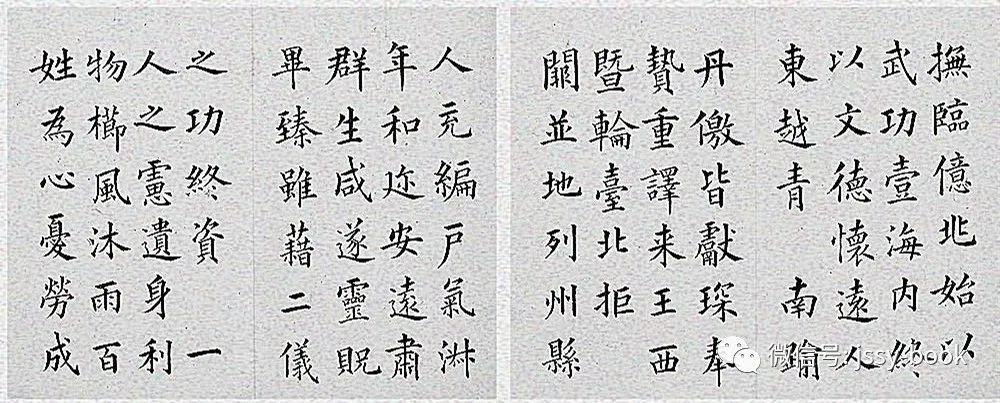 撫臨億兆始以
武功壹海内終
以文德懷遠人
東越青 南踰
丹徼皆獻琛奉
贄重譯来王西
暨輪臺北拒
闗並地列州縣
人充編戸氣淑
年和迩安遠肅
群生咸遂靈貺
畢臻雖藉二儀
之功終資 一
人之慮遺身利
物櫛風沐雨百
姓為心憂勞成
微信号: jssy-book